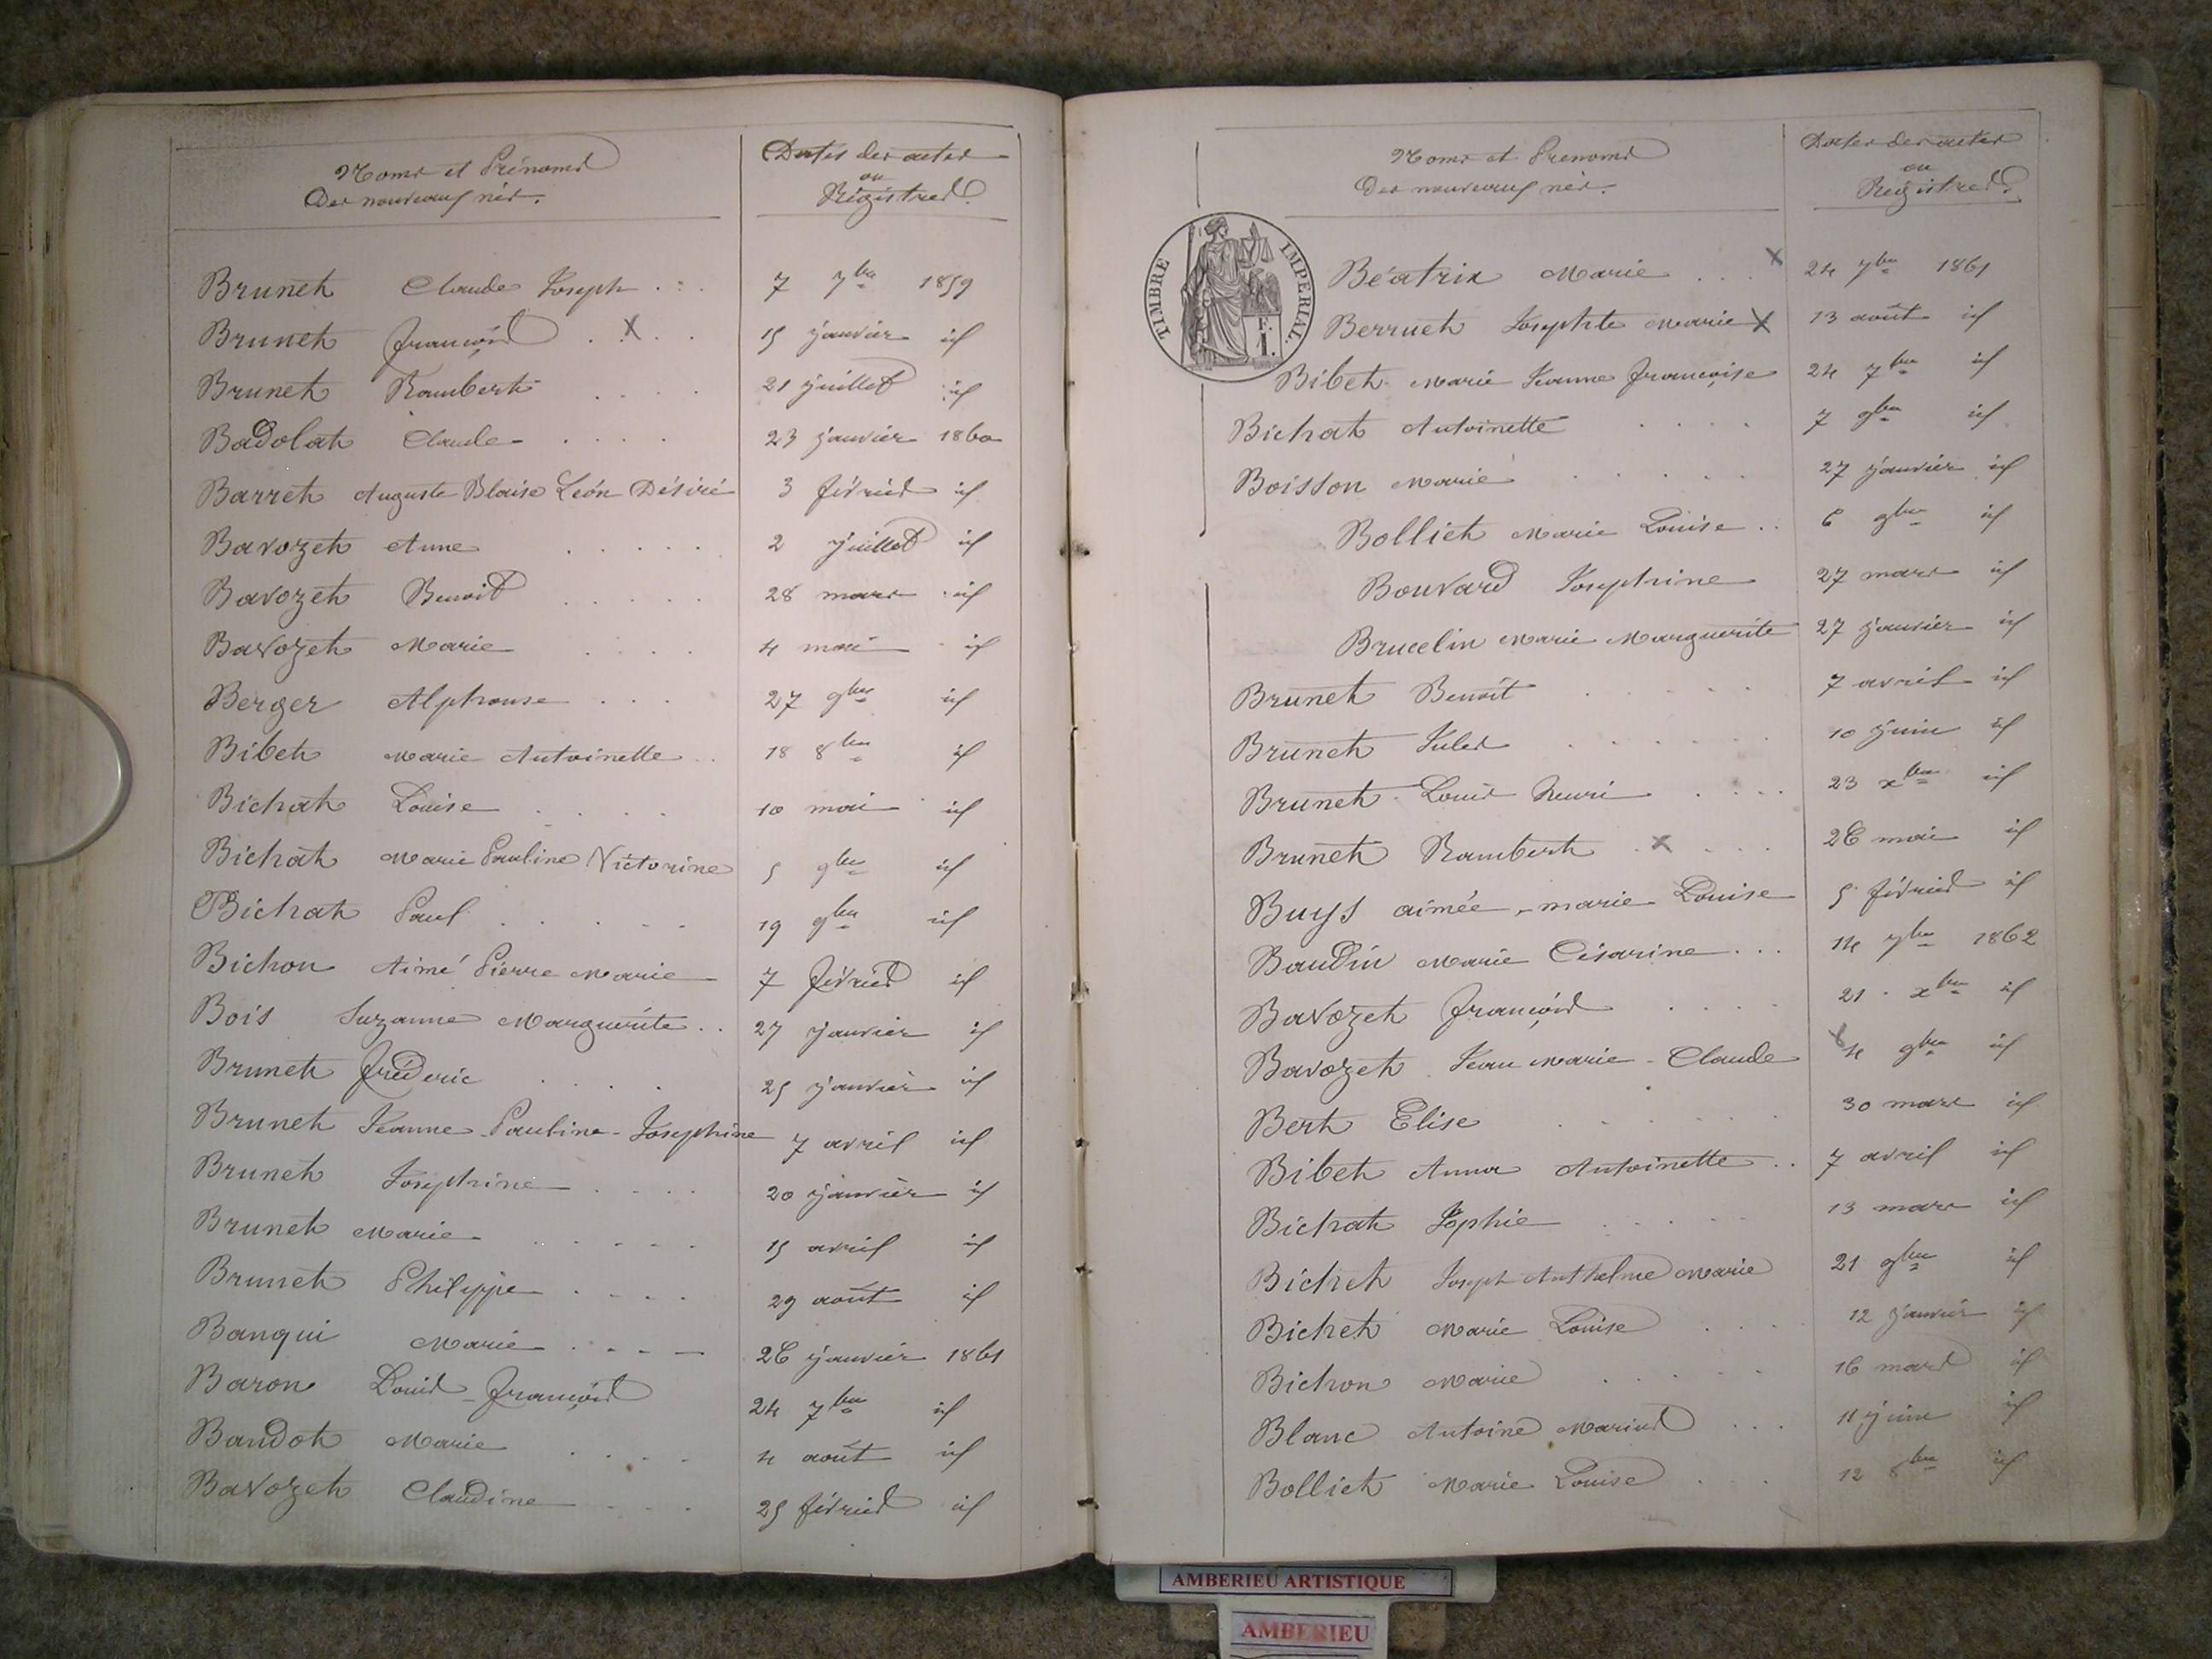 Noms et Prénoms
Des nouveaux nés.
Dates des actes
ou
Régistres.
Brunet Claude Joseph . . . 7 7bre 1859
Brunet François . X . . 15 janvier id
Brunet Rambert . . . . 21 juillet id
Badolat Claude . . . . 23 janvier 1860
Barret Auguste Blaise Léon Désiré 3 février id
Bavozet Anne . . . . . 2 juillet id
Bavozet Benoit . . . . . 28 mars id
Bavozet Marie . . . . 4 mai id
Berger Alphonse . . . 27 9bre id
Bibet Marie Antoinette . . 18 8bre id
Bichat Louise . . . . 10 mai id
Bichat Marie Pauline Victorine 5 9bre id
Bichat Paul . . . . . 19 9bre id
Bichon Aimé Pierre Marie 7 février id
Bois Suzanne Marguerite . . 27 janvier id
Brunet Fréderic . . . . 25 janvier id
Brunet Jeanne Pauline - Josephine 7 avril id
Brunet Josephine . . . . 20 janvier id
Brunet Marie . . . . . 15 avril id
Brunet Philippe . . . . 29 août id
Banqui Marie . . . . 26 janvier 1861
Baron Louis - François 24 7bre id
Baudot Marie . . . . 4 août id
Bavozet Claudine . . . 25 février id
Noms et Prenoms
Des nouveaux nés.
Dates des actes
ou
Régistres.
TIMBRE IMPERIAL.
F.
1.
Béatrix Marie . . . X 24 7bre 1861
Berruet Josephte Marie X 13 août id
Bibet Marie Jeanne Françoise 24 7bre id
Bichat Antoinette . . . . 7 9bre id
Boisson Marie . . . . . 27 janvier id
Bolliet Marie Louise . . 6 9bre id
Bouvard Josephine 27 mars id
Brucelin Marie Marguerite 27 janvier id
Brunet Benoit . . . . . 7 avril id
Brunet Jules . . . . . . 10 juin id
Brunet Louis henri . . . . 23 xbre id
Brunet Rambert . X . . . 26 mai id
Buys aimée - marie Louise 5 février id
Baudin Marie Césarine . . . 14 7bre 1862
Bavozet François . . . . 21 . xbre id
Bavozet Jean Marie - Claude X 4 9bre id
Bert Elise . . . . . 30 mars id
Bibet Anna Antoinette . . 7 avril id
Bichat Sophie . . . . . 13 mars id
Bichet Joseph Anthelme Marie 21 9bre id
Bichet Marie Louise . . . . 12 janvier id
Bichon Marie . . . . . 16 mars id
Blanc Antoine Marius . . . 11 juin id
Bolliet Marie Louise . . . 12 8bre id
AMBERIEU ARTISTIQUE
AMBERIEU